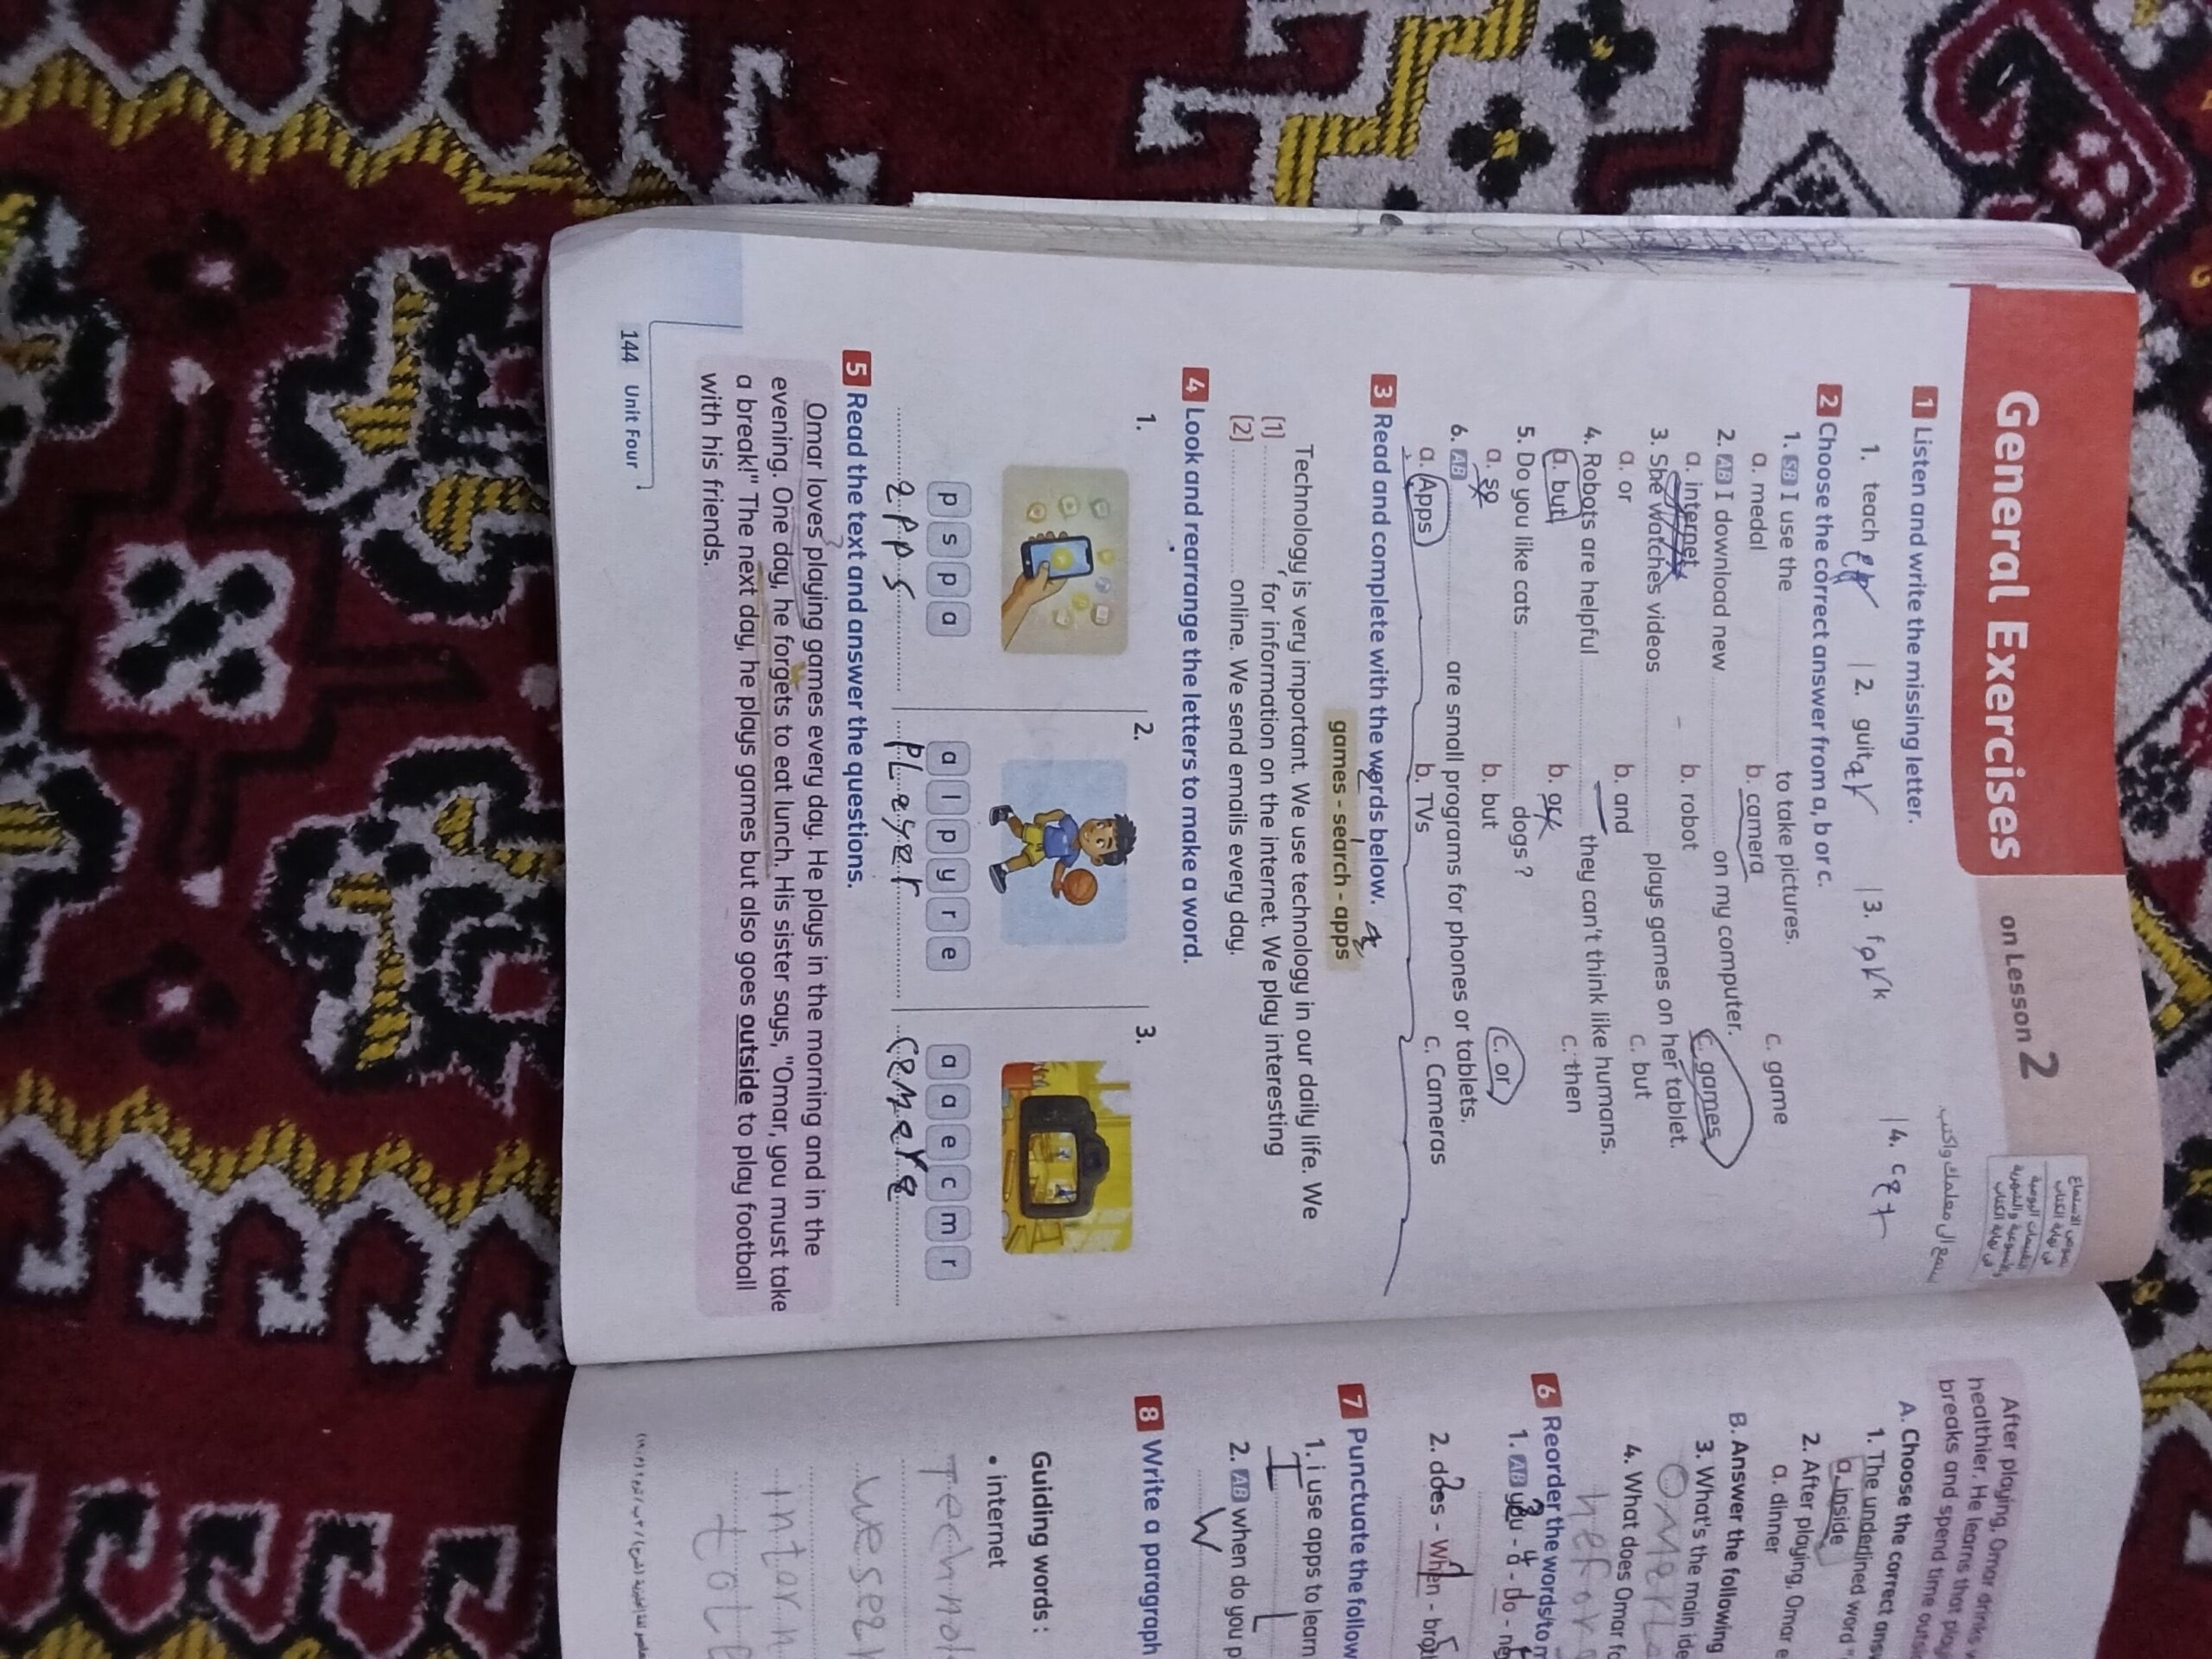 General Exercises on Lesson 2
1 Listen and write the missing letter.
استمع إلى معلمك واكتب.
1. teach er
2. guitar
3. fork
4. cat
2 Choose the correct answer from a, b or c.
1. SB I use the .......... to take pictures.
a. medal b. camera c. game
2. AB I download new .......... on my computer.
a. internet b. robot c. games
3. She watches videos .......... plays games on her tablet.
a. or b. and c. but
4. Robots are helpful .......... they can't think like humans.
a. but b. or c. then
5. Do you like cats .......... dogs ?
a. so b. but c. or
6. AB .......... are small programs for phones or tablets.
a. Apps b. TVs c. Cameras
3 Read and complete with the words below. 4
games - search - apps
Technology is very important. We use technology in our daily life. We
[1] .......... for information on the internet. We play interesting
[2] .......... online. We send emails every day.
4 Look and rearrange the letters to make a word.
1. 2. 3.
p s p a
a l p y r e
a a e c m r
apps
pLayer
camera
5 Read the text and answer the questions.
Omar loves playing games every day. He plays in the morning and in the
evening. One day, he forgets to eat lunch. His sister says, "Omar, you must take
a break!" The next day, he plays games but also goes outside to play football
with his friends.
144 Unit Four
After playing, Omar drinks
healthier. He learns that
breaks and spend time
A. Choose the correct
1. The underlined word
a. inside
2. After playing, Omar
a. dinner
B. Answer the following
3. What's the main
4. What does Omar
6 Reorder the words to
1. AB you - a - do -
2. does - When -
7 Punctuate the
1. i use apps to learn
I L
2. AB when do you
W
8 Write a paragraph
Guiding words :
• internet